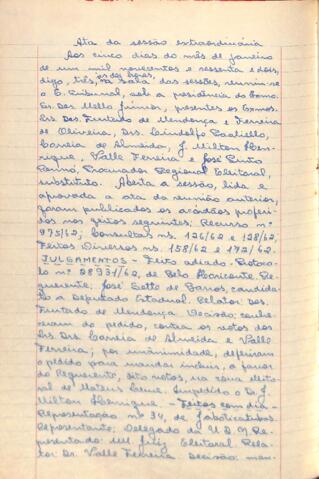 Ata da sessão extraordinária
Aos cinco dias do mês de janeiro
de um mil novecentos e sessenta e dois,
digo, três, às dez horas, na sala das sessões, reuniu-se
o E. Tribunal, sob a presidência do Exmo.
Sr. Des. Mello Júnior, presentes os Exmos.
Srs. Des. Furtado de Mendonça e Ferreira
de Oliveira, Drs. Lindolfo Paoliello,
Correia de Almeida, J. Milton Hen-
rique, Valle Ferreira e José Pinto
Renno, Procurador Regional Eleitoral,
substituto. Aberta a sessão, lida e
aprovada a ata da reunião anterior,
foram publicados os acórdãos proferi-
dos nos feitos seguintes: Recurso nº
975/62; Consultas ns. 126/62 e 128/62;
Feitos Diversos ns. 158/62 e 172/62.
JULGAMENTOS – Feito adiado – Protoco-
lo nº 28931/62, de Belo Horizonte. Re-
querente: José Sette de Barros, candida-
to a Deputado Estadual. Relator Des.
Furtado de Mendonça. Decisão: conhe-
ceram do pedido, contra os votos dos
Srs. Drs. Correia de Almeida e Valle
Ferreira; por unanimidade, deferiram
o pedido para mandar incluir, a favor
do Requerente, oito votos, na zona eleito-
ral de Mateus Leme. Impedido o Dr. J.
Milton Henrique – Feitos com dia –
Representação nº 34, de Jaboticatubas.
Representante: Delegado da U.D.N. Re-
presentado: MM. Juiz Eleitoral Rela-
tor: Dr. Valle Ferreira Decisão: man-